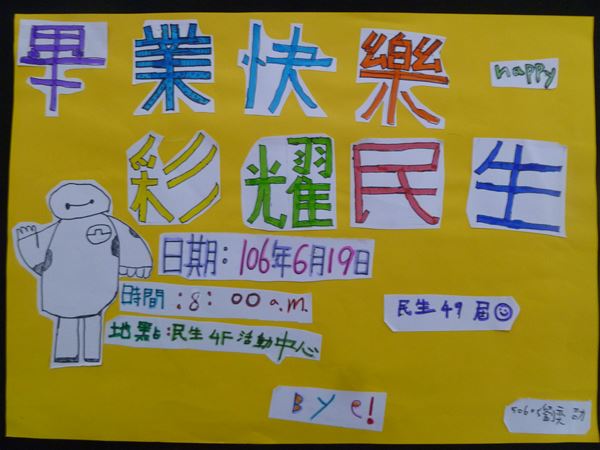 畢業快樂
happy
彩耀民生
日期：106年6月19日
時間：8：00 a.m.
民生49屆
地點：民生4F活動中心
Bye!